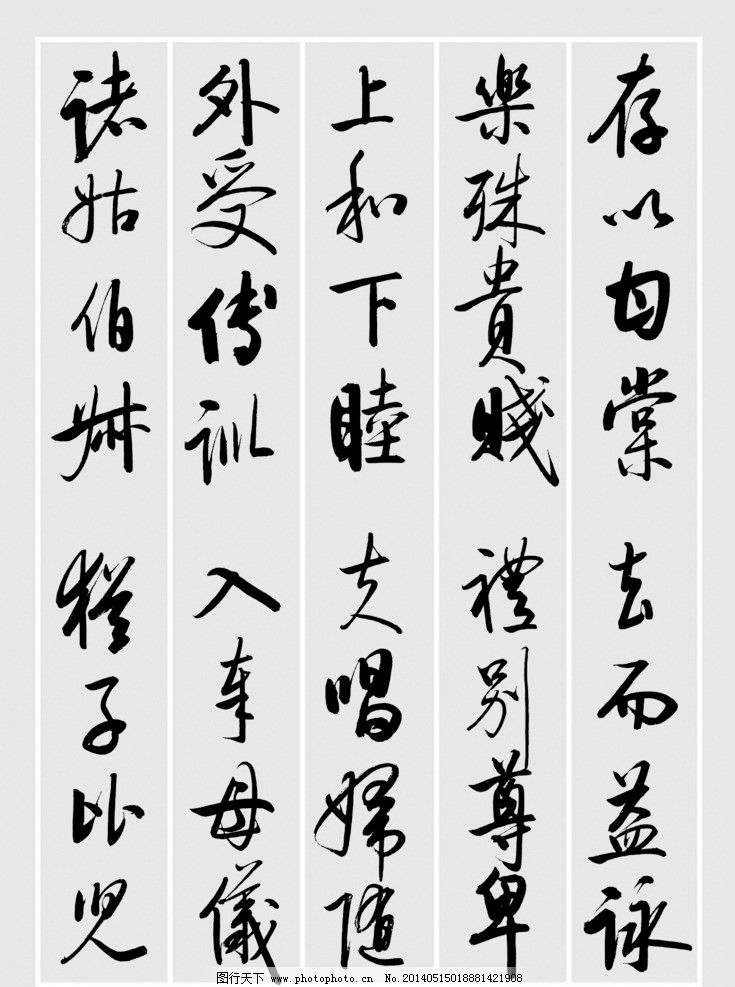 存以甘棠去而益詠
樂殊貴賤禮別尊卑
上和下睦夫唱婦隨
外受傅訓入奉母儀
諸姑伯叔猶子比兒
图行天下 www.photophoto.cn No.20140515018881421908